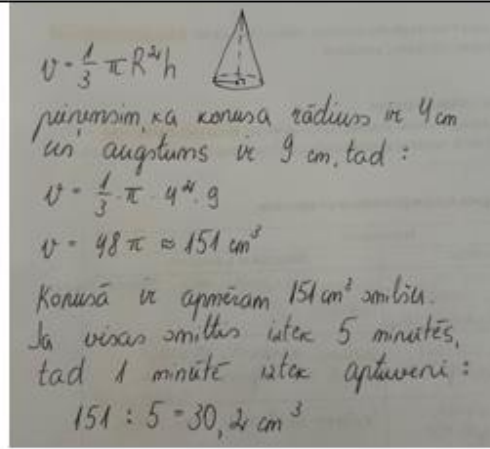 v = 1/3 π R²h
pieņemsim, ka konusa rādiuss ir 4 cm
un augstums ir 9 cm, tad :
v = 1/3 · π · 4² · 9
v = 48 π ≈ 151 cm³
Konusā ir apmēram 151 cm³ smilšu.
Ja visas smiltis iztek 5 minūtēs,
tad 1 minūtē iztek aptuveni :
151 : 5 = 30,2 cm³